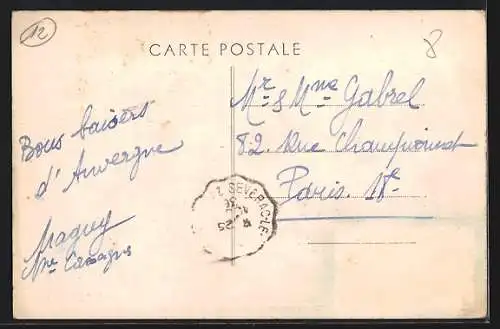 12
CARTE POSTALE
8
Bons baisers
d'Auvergne
Maguy
Mr & Mme Gabrel
82. Rue Championnet
Paris. 18e
SEVERAC-LE-
25
36